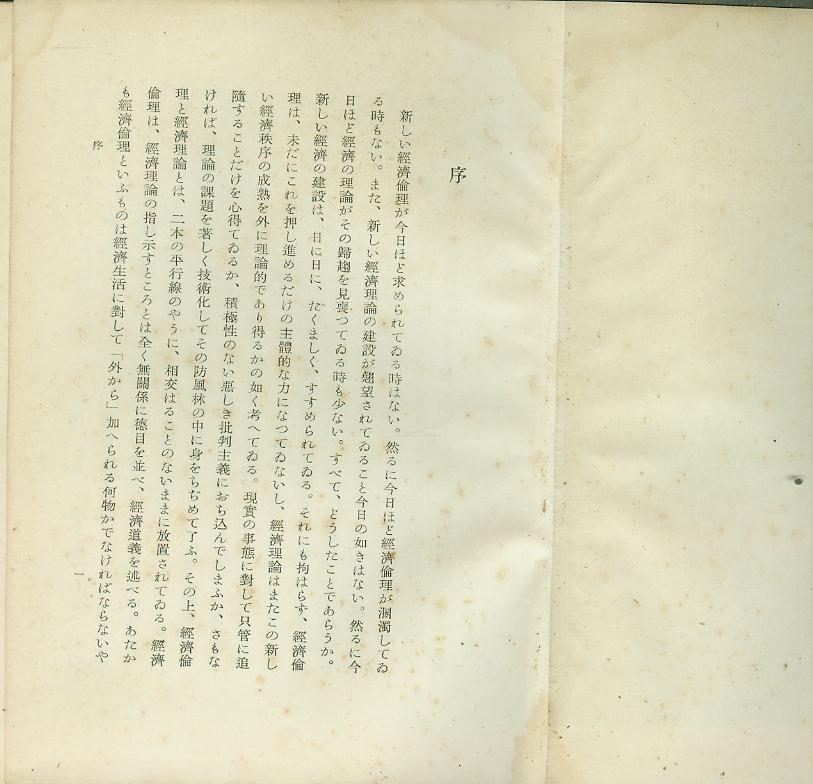 序
新しい經濟倫理が今日ほど求められてゐる時はない。然るに今日ほど經濟倫理が溷濁してゐ
る時もない。また、新しい經濟理論の建設が翹望されてゐること今日の如きはない。然るに今
日ほど經濟の理論がその歸趨を見喪つてゐる時も少ない。すべて、どうしたことであらうか。
新しい經濟の建設は、日に日に、たくましく、すすめられてゐる。それにも拘はらず、經濟倫
理は、未だにこれを押し進めるだけの主體的な力になつてゐないし、經濟理論はまたこの新し
い經濟秩序の成熟を外に理論的であり得るかの如く考へてゐる。現實の事態に對して只管に追
隨することだけを心得てゐるか、積極性のない惡しき批判主義におち込んでしまふか、さもな
ければ、理論の課題を著しく技術化してその防風林の中に身をちぢめて了ふ。その上、經濟倫
理と經濟理論とは、二本の平行線のやうに、相交はることのないままに放置されてゐる。經濟
倫理は、經濟理論の指し示すところとは全く無關係に德目を並べ、經濟道義を述べる。あたか
も經濟倫理といふものは經濟生活に對して「外から」加へられる何物かでなければならないや
序
一